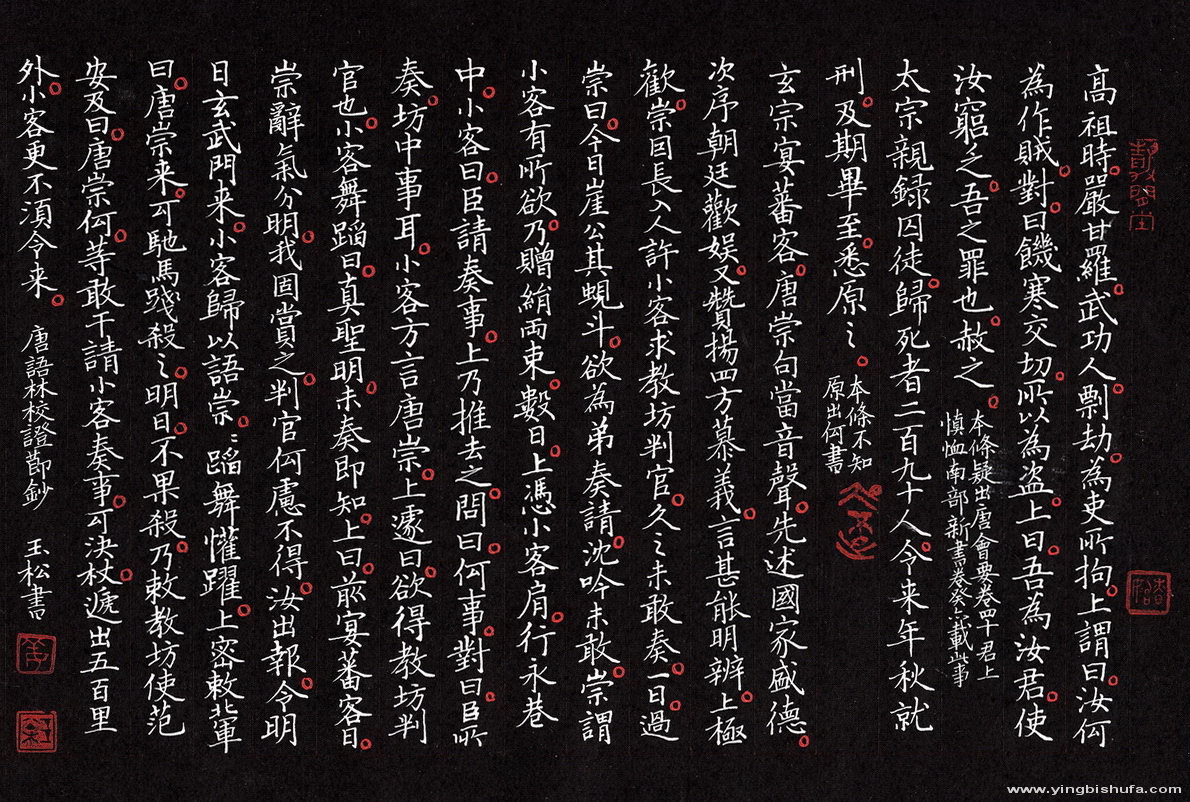 高祖時。嚴甘羅。武功人。剽劫。為吏所拘。上謂曰。汝何
為作賊。對曰。饑寒交切。所以為盜。上曰。吾為汝君。使
汝窮乏。吾之罪也。赦之。本條疑出唐會要卷四十君上
慎恤南部新書卷癸亦載此事
太宗親録囚徒。歸死者二百九十人。令来年秋就
刑。及期畢至。悉原之。本條不知
原出何書
玄宗宴蕃客。唐崇句當音聲。先述國家盛德。
次序朝廷歡娱。又贊揚四方慕義。言甚能明辨。上極
歡。崇因長入人許小客求教坊判官。久之未敢奏。一日。過
崇曰。今日崖公甚蜆斗。欲為弟奏請。沈吟未敢。崇謂
小客有所欲。乃贈絹兩束。數日。上憑小客肩。行永巷
中。小客曰。臣請奏事。上乃推去之。問曰。何事。對曰。臣所
奏。坊中事耳。小客方言唐崇。上遽曰。欲得教坊判
官也。小客舞蹈曰。真聖明。未奏即知。上曰。前宴蕃客日。
崇辭氣分明。我固賞之。判官何慮不得。汝出報。令明
日玄武門来。小客歸以語崇。崇蹈舞懽躍。上密敕北軍
曰。唐崇来。可馳馬踐殺之。明日。不果殺。乃敕教坊使范
安及曰。唐崇何等。敢干請小客奏事。可決杖。遞出五百里
外。小客更不須令来。 唐語林校證節鈔 玉松書
www.yingbishufa.com